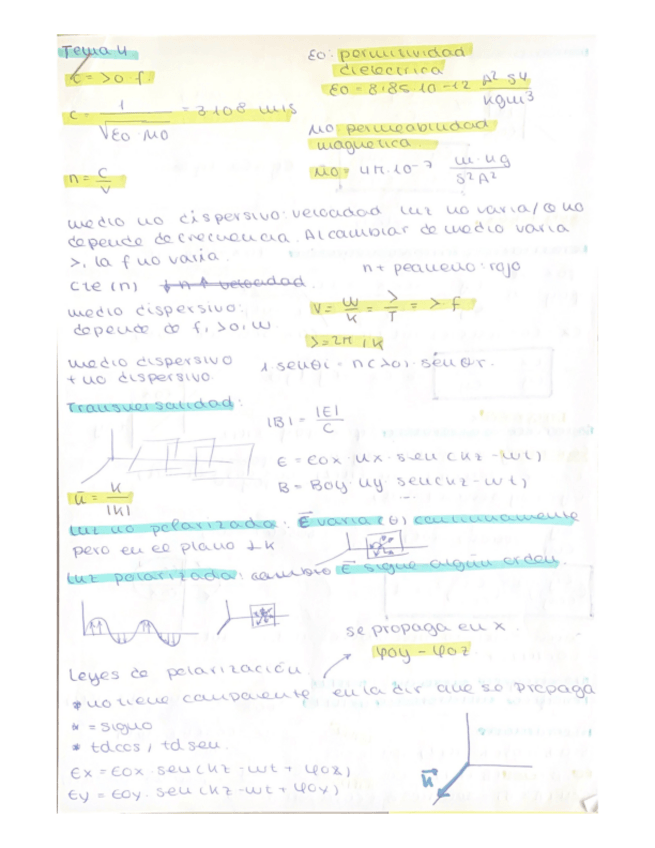 Tema 4
c = λo f.
c = 1 / √εo · μo = 3·10^8 m/s
n = c / v
εo: permitividad
dieléctrica
εo = 8'85·10^-12 A² s4 / kgm3
μo permeabilidad
magnética.
μo = 4π·10^-7 m·kg / s²A²
medio no dispersivo: velocidad luz no varía / no
depende de frecuencia. Al cambiar de medio varía
λ, la f no varía.
n + pequeño: rojo
cte (n) ↓ n ↑ velocidad.
medio dispersivo:
depende de f, λo, w.
v = w/k = λ/T = λ f
λ = 2π / k
medio dispersivo
+ no dispersivo.
1 · senθi = n(λo) · senθr.
Transversalidad:
|B| = |E| / c
E = Eox · ux · sen(kz - wt)
B = Boy · uy · sen(kz - wt)
u = k / |k|
Luz no polarizada: E varía (θ) continuamente
pero en el plano ⊥ k
Luz polarizada: cambio E sigue algún orden.
se propaga en x.
φoy - φoz
Leyes de polarización
* no tiene componente en la dir que se propaga
* = signo
* td cos / td sen.
Ex = Eox · sen(kz - wt + φox)
Ey = Eoy · sen(kz - wt + φoy)